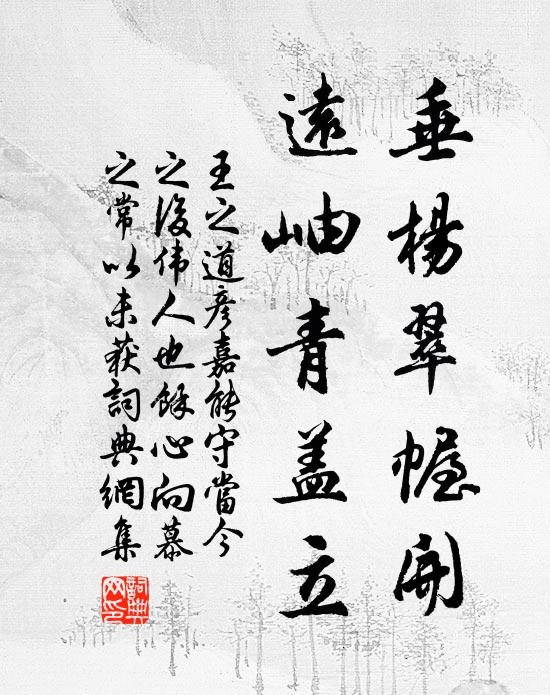 垂楊翠幄開
遠岫青蓋立
王之道彦嘉能守當今
之後偉人也餘心向慕
之常以未获詞典網集